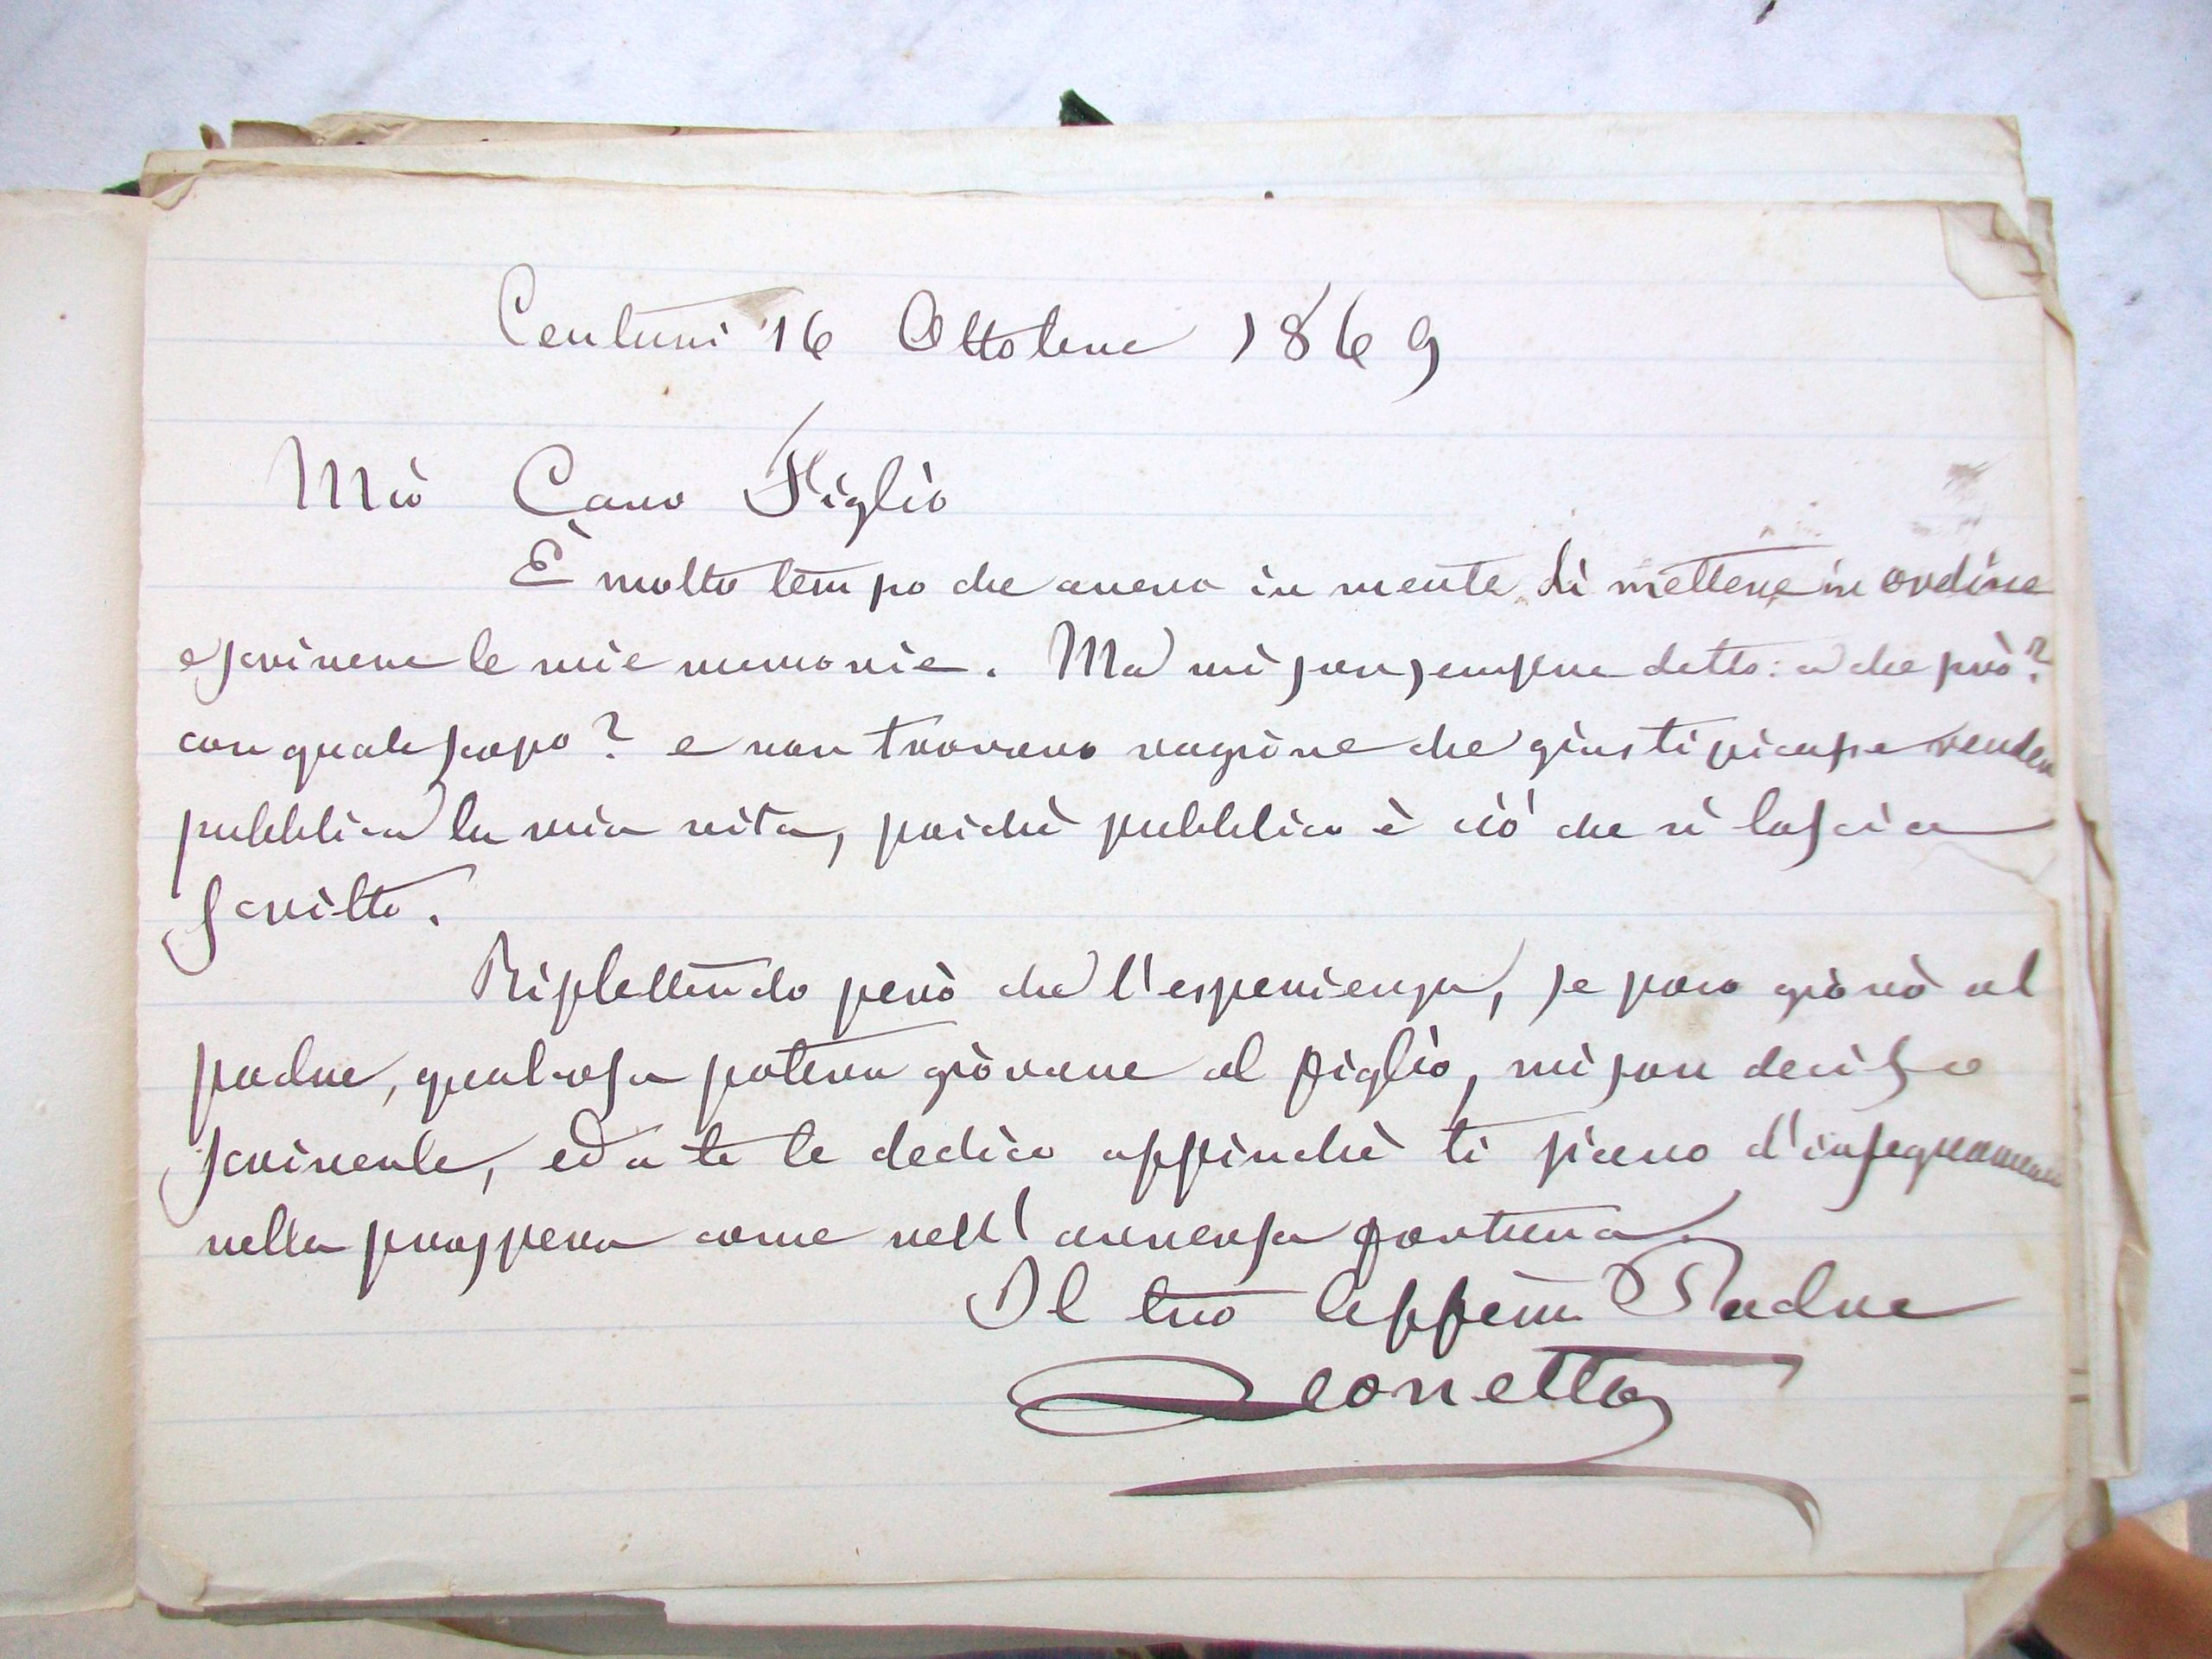 Centuri 16 Ottobre 1869
Mio Caro Figlio
È molto tempo che avevo in mente di mettere in ordine
e scrivere le mie memorie. Ma mi son sempre detto: a che prò?
con quale scopo? e non trovavo ragione che giustificasse render
pubblica la mia vita, poichè pubblico è ciò che si lascia
scritto.
Riflettendo però che l'esperienza, se poco giovò al
padre, qualcosa poteva giovare al figlio, mi son deciso a
scriverle, ed a te le dedico affinchè ti siano d'insegnamento
nella prospera come nell'avversa fortuna.
Il tuo Padre
Leonetto